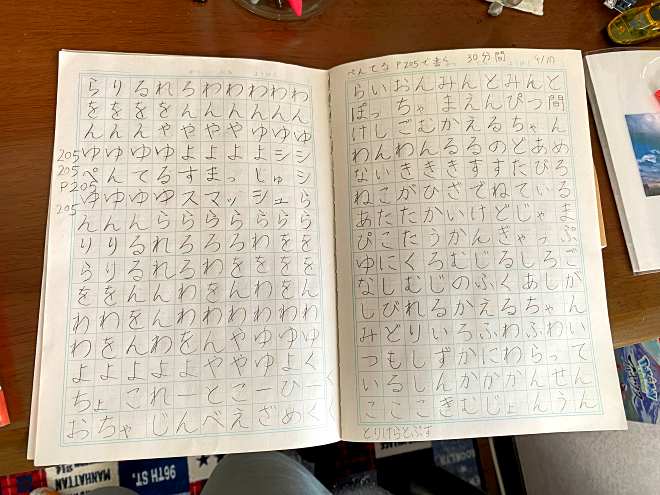 らりるれろわわわわわ
ををををんんんんんん
んんんややややゆゆゆ
205 ゆゆゆゆよよよよシシ
205 ぺんてるすまっしゅシ
P205 ゆゆゆゆスマッシュら
205 んんんららららららら
りりるれろろろわをを
らりるれろわをををを
ををんんわをんわをん
わわをんわわわわわわ
わをんわをんやゆゆゆ
よよよよよややゆよく
ちょこれーとこーひーく
おちゃじんべえざめく
ぺんてるP205で書く 30分間 4/17
らいおんみんとみんと
ぽっちゃまえんぴつ間
けしごむかえるちゃん
わんわんるるのどあめ
ないきききすすたびろ
ねこがひざでねている
あたたかいけどじゃま
ぴこたうかんぎゃっぷ
ゆにくろむじるしろご
なしむじのふくあしが
しびれるかえるちゃん
みどりいろふわふわい
つもしずかにわらって
いるしんかかかんせん
こここきむじょんうん
とりけらとぷす
96TH ST.
MANHATTAN
BROOKLYN